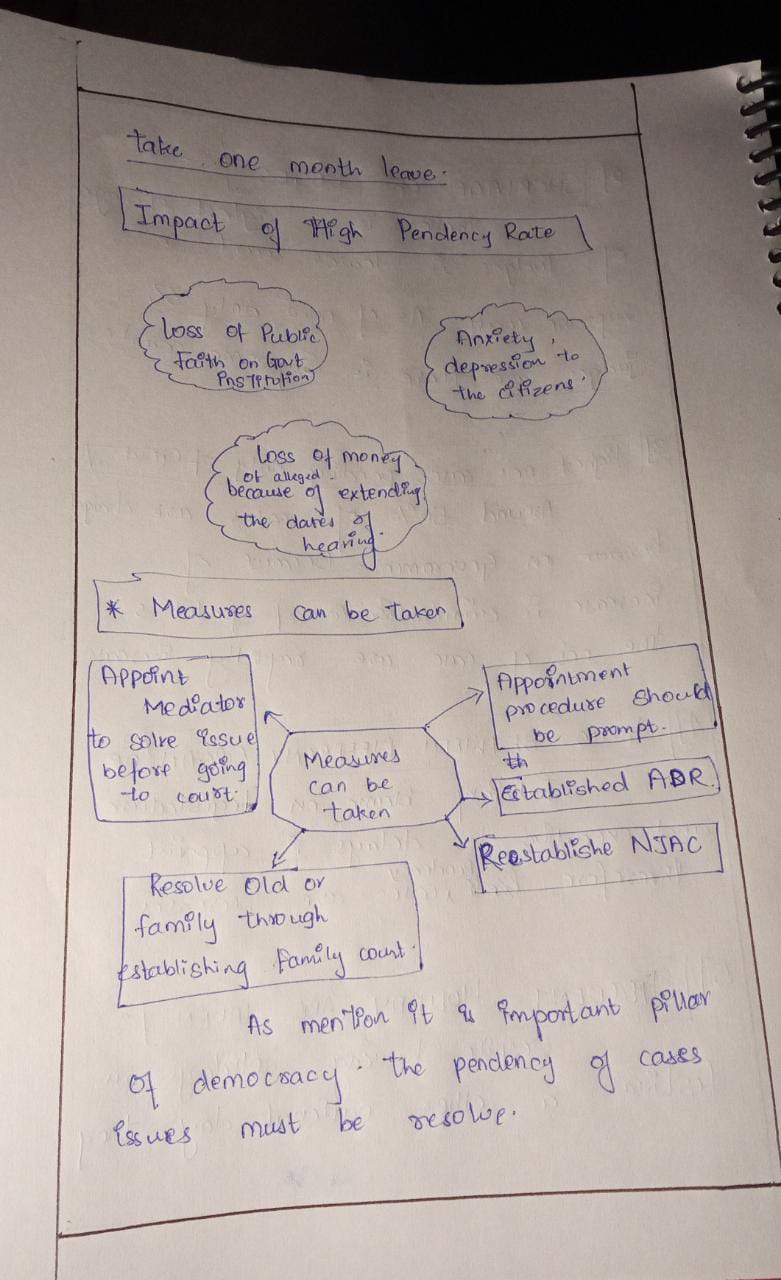 take one month leave.
Impact of High Pendency Rate
Loss of Public
Faith on Govt
Institution
Anxiety,
depression to
the citizens.
Loss of money
of alleged
because of extending
the dates of
hearing.
* Measures can be taken
Appoint
Mediator
to solve issue
before going
to court.
Measures
can be
taken
Appointment
procedure should
be prompt.
th
Established ADR.
Reestablishe NJAC
Resolve Old or
family through
establishing family court.
As mention it is important pillar
of democracy. the pendency of cases
issues must be resolve.